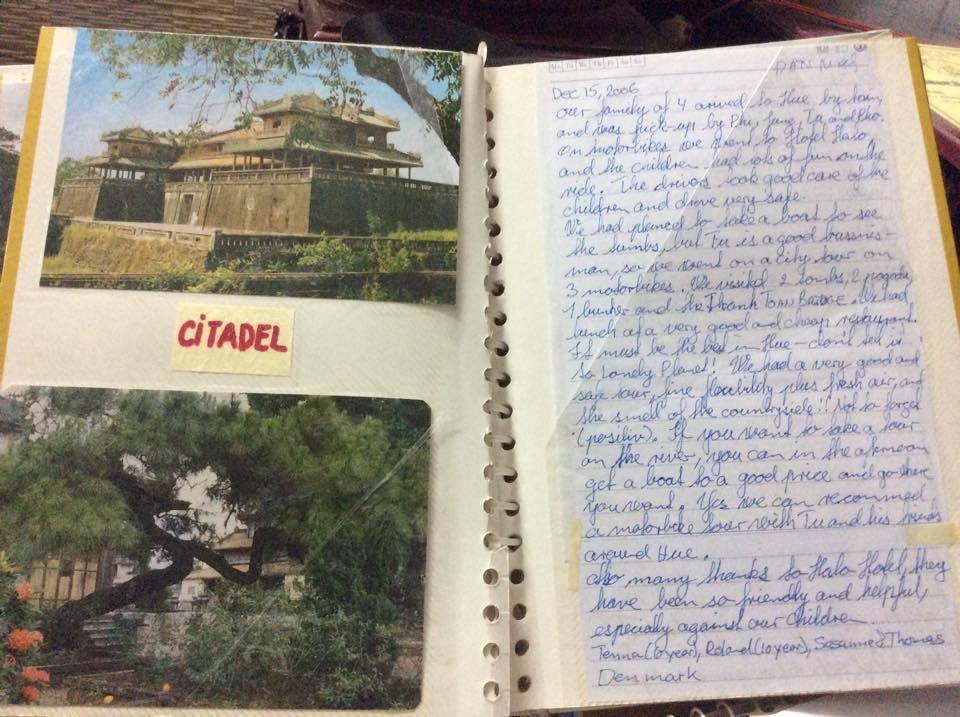 CiTADEL
DAN MARK
Dec 15, 2006
Our family of 4 arived to Hue by train,
and was pick-up by Phi, June, Tu and Pho.
On motorbikes we went to Hotel Halo,
and the children had lots of fun on the
ride. The drivers took good care of the
children and drove very safe.
We had planed to take a boat to see
the tombs, but Tu is a good bussnes-
man, so we went on a city tour on
3 motorbikes. We visited 2 tombs, 2 pagoda,
1 bunker and the Thanh TOAN BRIDGE. We had
lunch at a very good and cheap restaurant.
It must be the best in Hue – don't tell it
to Lonely Planet! We had a very good and
safe tour, fine flexability plus fresh air, and
the smell of the countryside!! Not to forget
(positiv). If you want to take a tour
on the river, you can in the afternoon
get a boat to a good price and go there
you want. Yes we can recommed
a motorbike tour with Tu and his friends
around Hue.
Also many thanks to Halo Hotel, they
have been so friendly and helpful,
especially against our children
Tenna (6 year), Roland (10 year), Sosanne & Thomas
Denmark